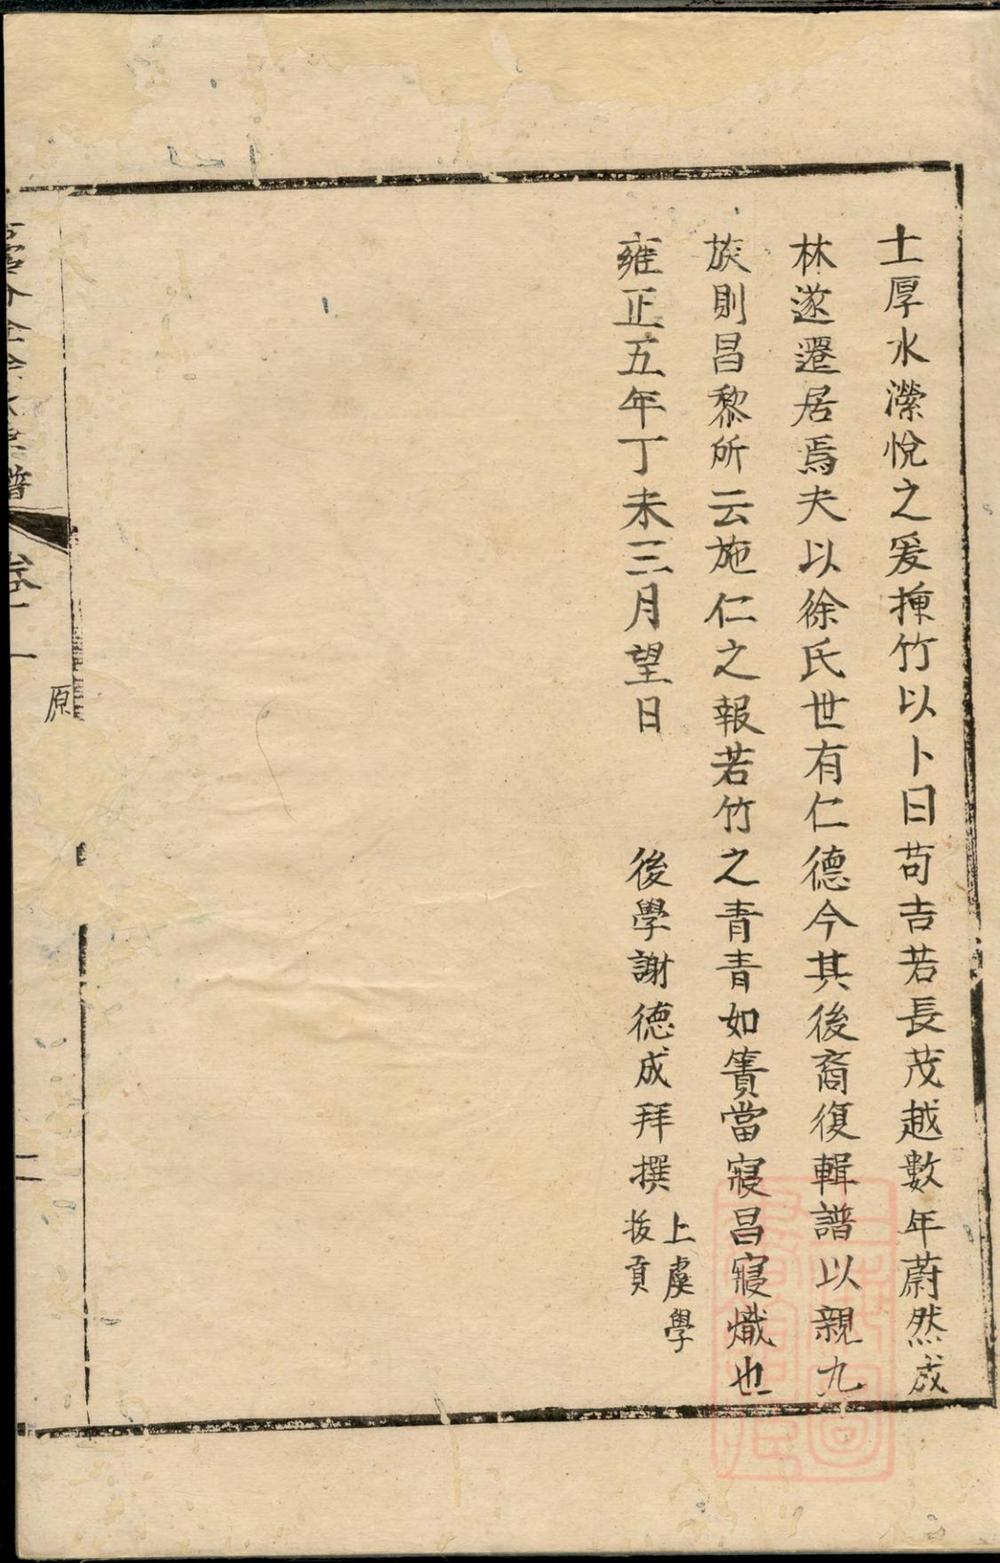 土厚水瀠悅之爰揀竹以卜曰苟吉若長茂越數年蔚然成
林遂遷居焉夫以徐氏世有仁德今其後裔復輯譜以親九
族則昌黎所云施仁之報若竹之青青如簀當寢昌寢熾也
雍正五年丁未三月望日　後學謝德成拜撰
上虞學
拔貢
譜
卷一
原
二